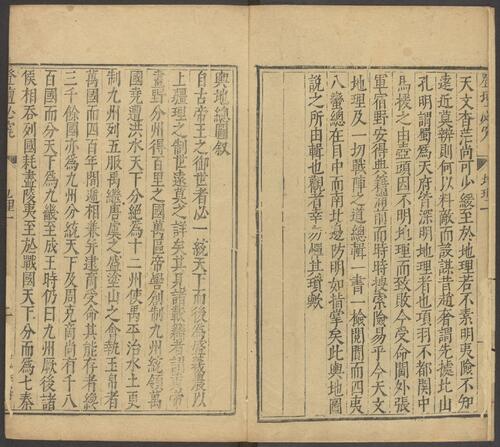 登壇必究 地理一
天文杳茫尚可少緩至於地理若不素明夷險不知
遠近莫辨則何以料敵而設謀昔趙奢謂先據北山
孔明謂蜀為天府皆深明地理者也項羽不都關中
馬援之由壺頭因不明地理而致敗今受命閫外張
軍宿野安得典籍滿前而時時搜索險易乎今天文
地理及一切戰陣之道總輯一書一檢閱間而四夷
八蠻總在目中而南北邊防明如指掌矣此輿地圖
說之所由輯也觀者幸勿煩其瑣歟
輿地總圖敘
自古帝王之御世者必一統天下而後為盛羲農以
上疆理之制世遠莫之詳矣其見諸載籍者謂黃帝
畫野分州得百里之國萬區帝嚳創制九州統領萬
國堯遭洪水天下分絕為十二州使禹平治水土更
制九州列五服禹繼唐虞之盛塗山之會執玉帛者
萬國而四百年間遞相兼并逮商受命其能存者纔
三千餘國亦為九州分統天下及周克商尚有千八
百國而分天下為九畿至成王時仍曰九州厥後諸
侯相吞列國耗盡陵夷至於戰國天下分而為七秦
登壇必究 地理一